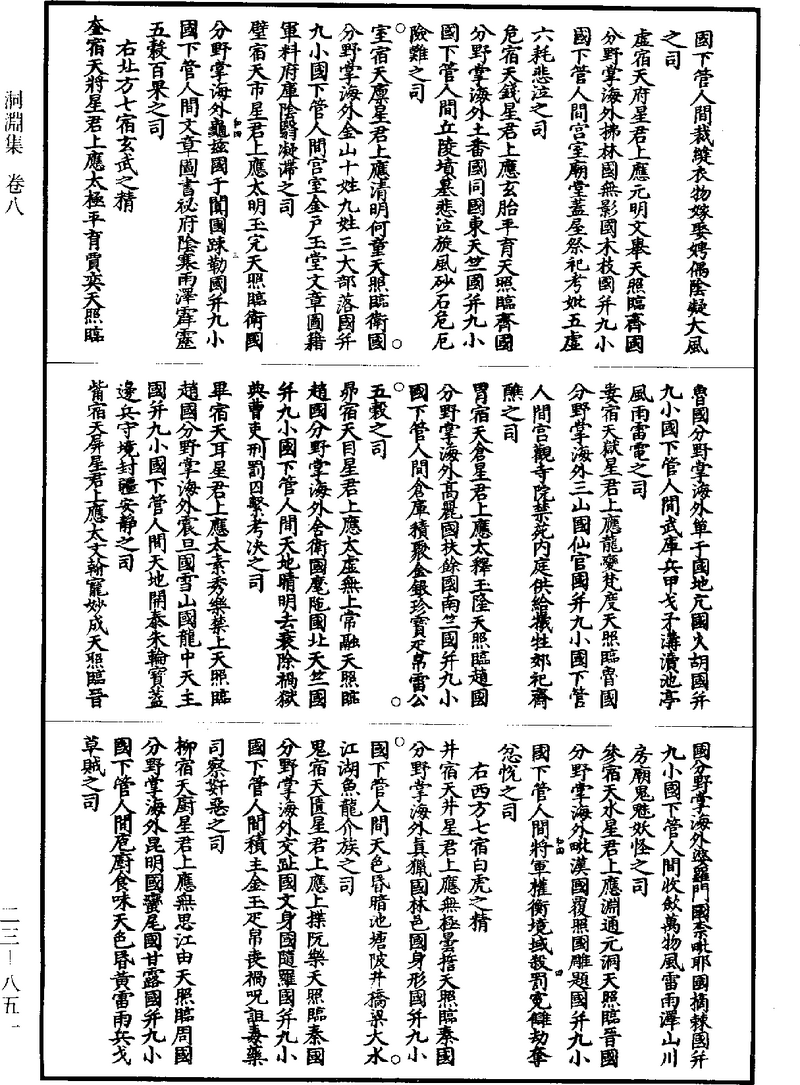 國下管人間裁縫衣物嫁娶娉偶陰凝大風
之司
虛宿天府星君上應元明文舉天照臨齊國
分野掌海外拂林國無影國木枝國并九小
國下管人間宫室廟堂蓋屋祭祀考妣五虛
六耗悲泣之司
危宿天錢星君上應玄胎平育天照臨齊國
分野掌海外土番國同國東天竺國并九小
國下管人間丘陵墳墓悲泣旋風砂石危厄
險難之司
室宿天廪星君上應清明何童天照臨衛國
分野掌海外金山十姓九姓三大部落國并
九小國下管人間宫室金户玉堂文章圖籍
軍料府庫陰翳凝滯之司
壁宿天市星君上應太明玉完天照臨衛國
分野掌海外龜兹國于闐國踈勒國并九小
國下管人間文章圖書祕府陰寒雨澤霹靂
五穀百果之司
右北方七宿玄武之精
奎宿天將星君上應太極平育賈奕天照臨
魯國分野掌海外單于國地亢國火胡國并
九小國下管人間武庫兵甲戈矛溝瀆池亭
風雨雷電之司
婁宿天獄星君上應龍變梵度天照臨魯國
分野掌海外三山國仙官國并九小國下管
人間宫觀寺院禁苑内庭供給犧牲郊祀齋
醮之司
胃宿天倉星君上應太釋玉隆天照臨趙國
分野掌海外高麗國扶餘國南竺國并九小
國下管人間倉庫積聚金銀珍寶疋帛雷公
五穀之司
昴宿天目星君上應太虛無上常融天照臨
趙國分野掌海外舍衛國魔陁國北天竺國
并九小國下管人間天地晴明去衰除禍獄
典曹吏刑罰囚繫考決之司
畢宿天耳星君上應太素秀樂禁上天照臨
趙國分野掌海外震旦國雪山國龍中天主
國并九小國下管人間天地開泰朱輪寳蓋
邊兵守境封疆安靜之司
觜宿天屏星君上應太文翰寵妙成天照臨晉
國分野掌海外婆羅門國柰毗耶國樀棘國并
九小國下管人間收斂萬物風雷雨澤山川
房廟鬼魅妖怪之司
參宿天水星君上應淵通元洞天照臨晉國
分野掌海外毗漢國覆照國雕題國并九小
國下管人間將軍權衡境域殺罰寃讎劫奪
忿恱之司
右西方七宿白虎之精
井宿天井星君上應無極曇誓天照臨秦國
分野掌海外真獵國林邑國身形國并九小
國下管人間天色昏暗池塘陂井橋梁大水
江湖魚龍介族之司
鬼宿天匱星君上應上揲阮樂天照臨秦國
分野掌海外交趾國文身國隨羅國并九小
國下管人間積主金玉疋帛喪禍呪詛毒藥
司察奸惡之司
柳宿天廚星君上應無思江由天照臨周國
分野掌海外昆明國蠻尾國甘露國并九小
國下管人間庖廚食味天色昏黄雷雨兵戈
草賊之司
洞淵集 卷八
二三—八五一